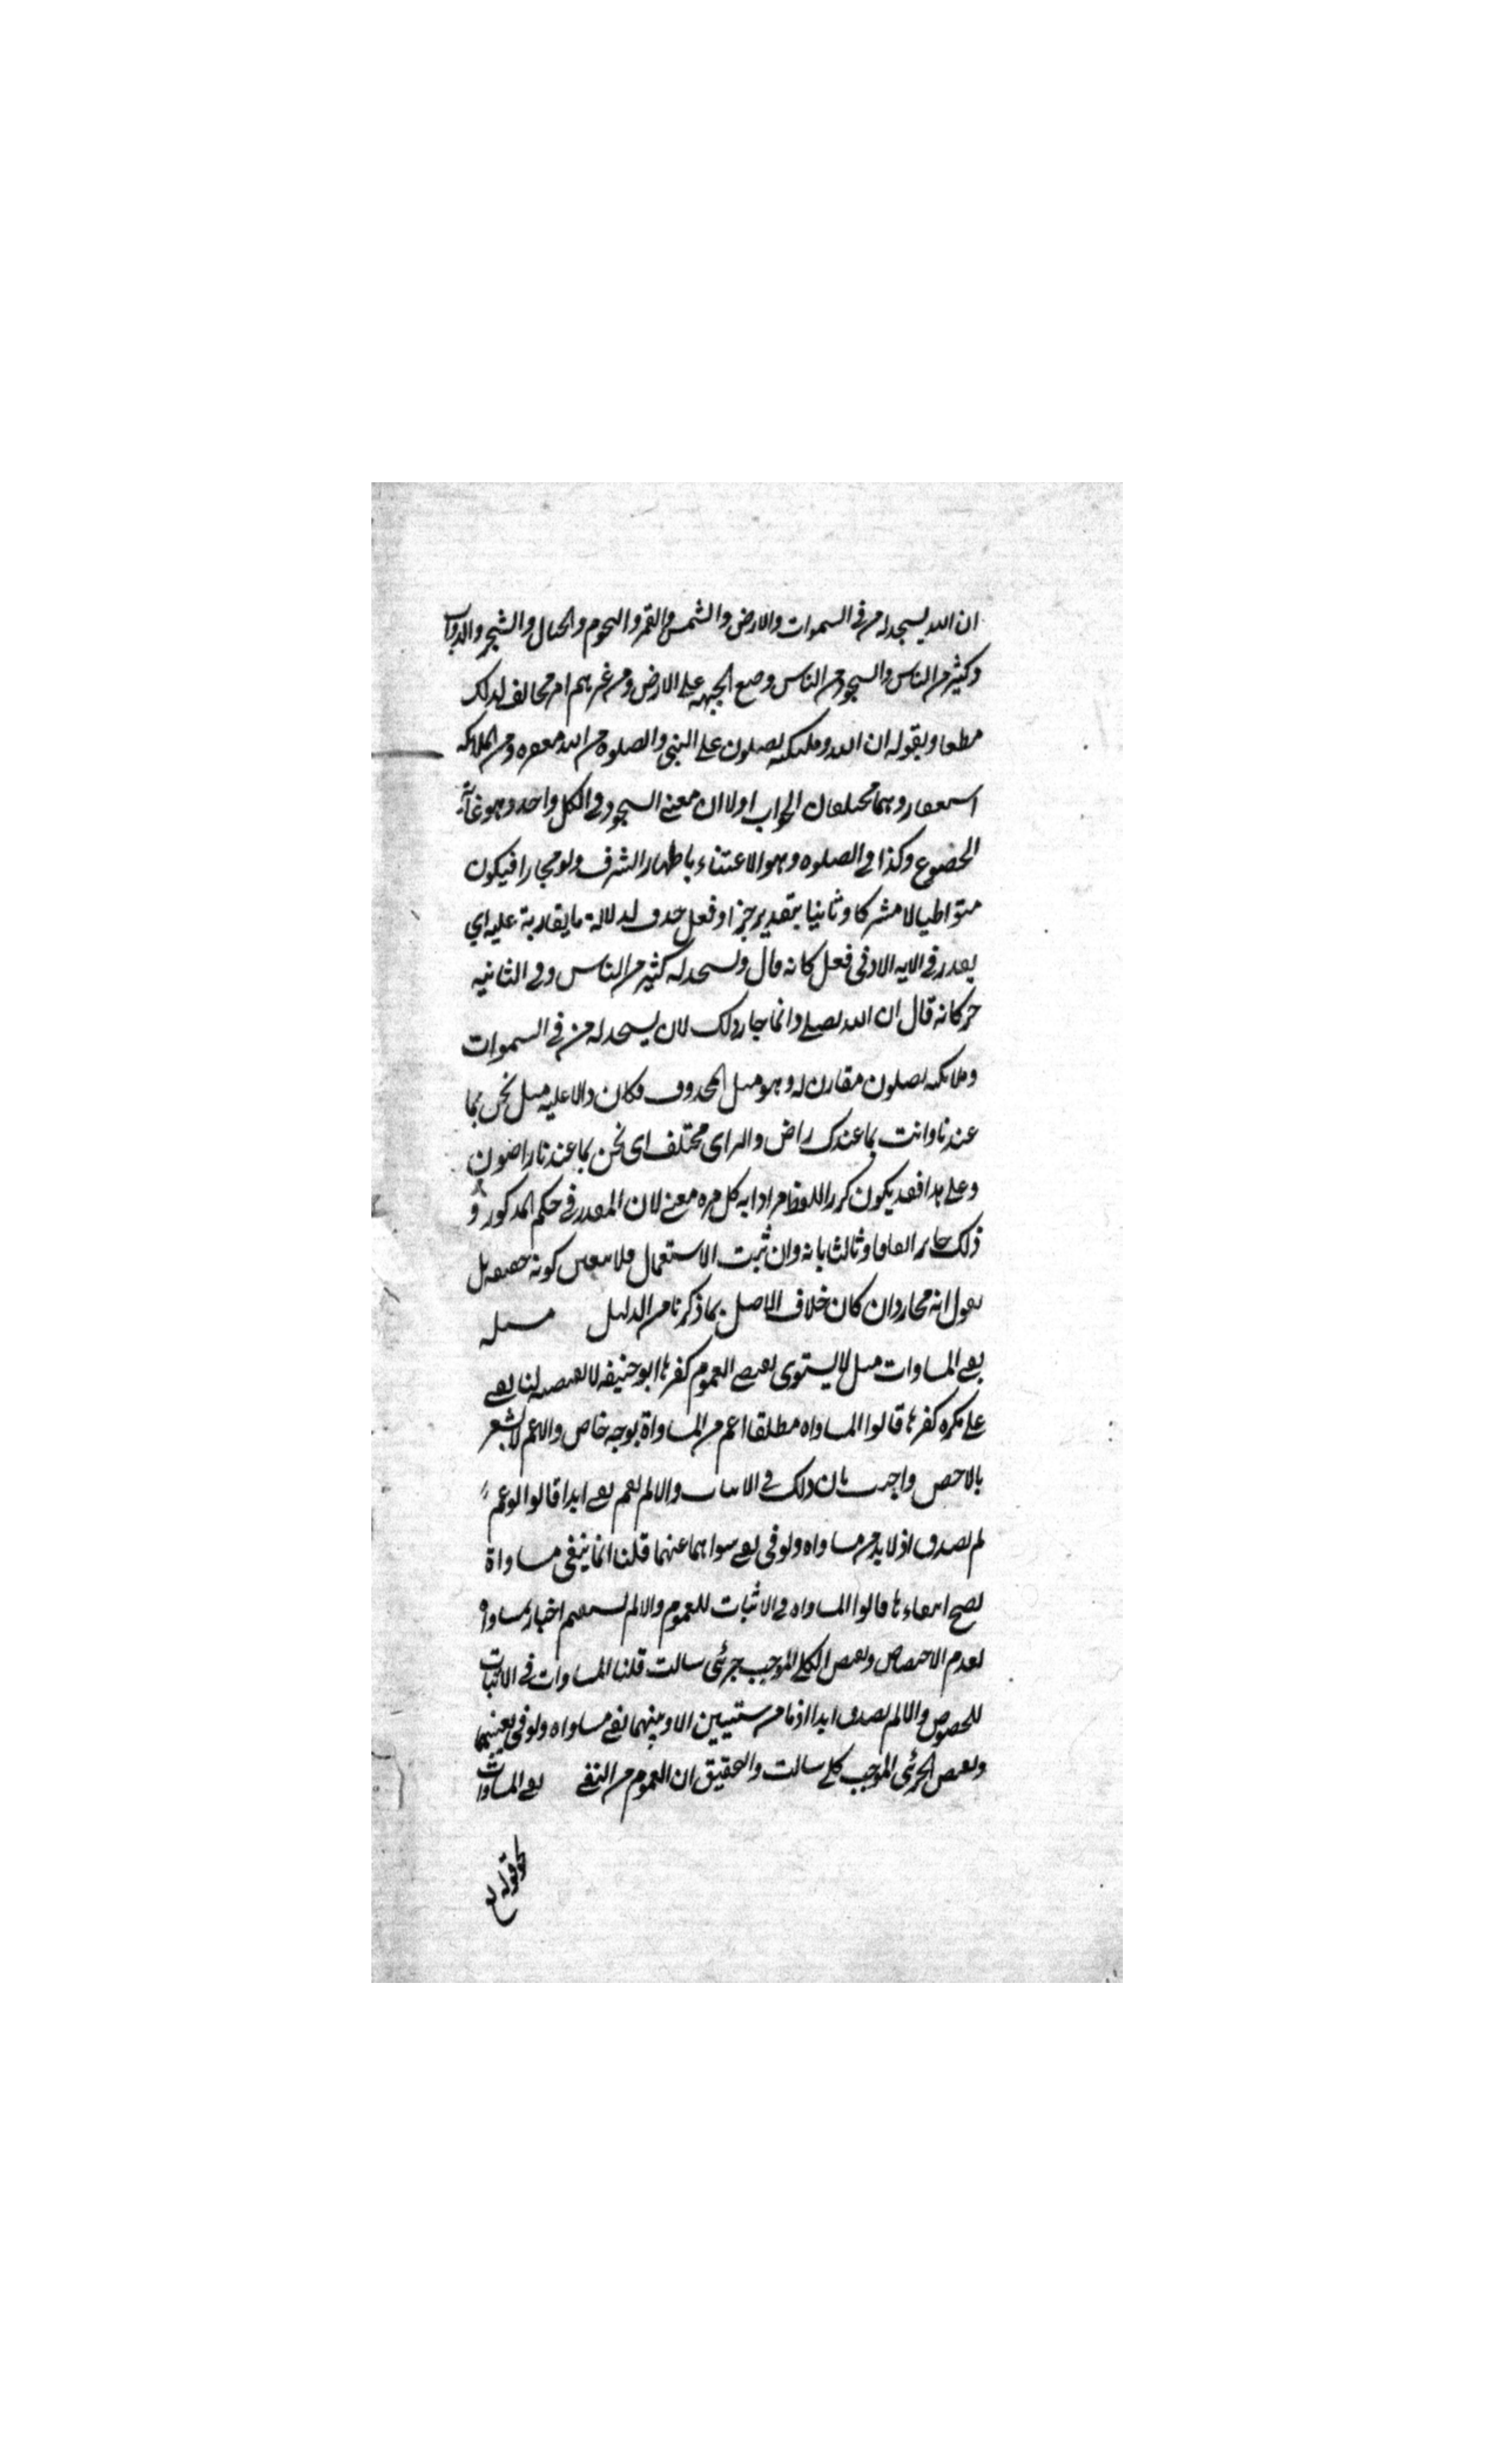 ان الله يسجد له من في السموات والارض والشمس والقمر والنجوم والجبال والشجر والدواب
وكثير من الناس والسجود من الناس وضع الجبهه على الارض ومن غيرهم امر مخالف لذلك
قطعا وبقوله ان الله وملئكته يصلون على النبي والصلوه من الله مغفره ومن الملائكه
استغفار وهما مختلفان الجواب اولا ان معنى السجود في الكل واحد وهو غاية
الخضوع وكذا في الصلوه وهو الاعتناء باظهار الشرف ولو مجازا فيكون
متواطيا لا مشتركا وثانيا بتقدير خبر او فعل حذف لدلالة ما يقاربة عليه اي
يقدر في الايه الاولى فعل كانه قال ويسجد له كثير من الناس وفي الثانيه
خبر كانه قال ان الله يصلي وانما جاز ذلك لان يسجد له من في السموات
وملائكته يصلون مقارن له وهو مثل المحذوف فكان دالا عليه مثل نحن بما
عندنا وانت بما عندك راض والراى مختلف اى نحن بما عندنا راضون
وعلى هذا فقد يكون كرر اللفظ مرادا به كل مره معنى لان المقدر في حكم المذكور و
ذلك جايز اتفاقا وثالثا بانه وان ثبت الاستعمال فلا يتعين كونه حقيقه بل
نقول انه مجاز وان كان خلاف الاصل بما ذكرنا من الدليل مسئله
نفي المساوات مثل لا يستوى يقتضي العموم كغيرها ابو حنيفه لا يقتضيه لنا نفي
على نكره كغيرها قالوا المساواه مطلقا اعم من المساواة بوجه خاص والاعم لا يشعر
بالاخص واجيب بان ذلك في الاثبات والا لم يعم نفي ابدا قالوا لو عم
لم يصدق اذ لا بد من مساواه ولو في نفي سواهما عنهما قلنا انما ينفى مساواة
يصح انتفاءها قالوا المساواه في الاثبات للعموم والا لم يستقم اخبار بمساواه
لعدم الاختصاص ونقيض الكلي الموجب جزئى سالب قلنا المساوات في الاثبات
للخصوص والا لم يصدق ابدا اذ ما من شيئين الا وبينهما نفي مساواه ولو في تعينهما
ونقيض الجزئى الموجب كلي سالب والتحقيق ان العموم من النفي نفي المساوات